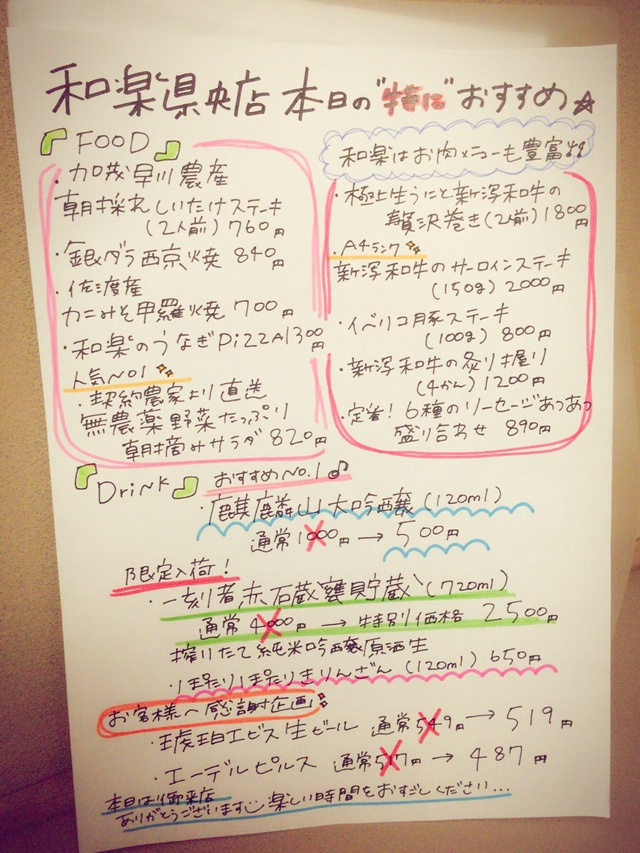 和楽県央店 本日の"特に"おすすめ☆
FOOD
・加茂早川農産
朝採れしいたけステーキ
(2人前) 760円
・銀ダラ西京焼 840円
・佐渡産
カニみそ甲羅焼 700円
・和楽のうなぎPiZZA1300円
人気NO1
・契約農家より直送
無農薬野菜たっぷり
朝摘みサラダ 820円
和楽はお肉メニューも豊富!!
・極上生うにと新潟和牛の
贅沢巻き(2人前)1800円
・A4ランク
新潟和牛のサーロインステーキ
(150g) 2000円
・イベリコ豚ステーキ
(100g) 800円
・新潟和牛の炙り握り
(4かん) 1200円
・定番!6種のソーセージあつあつ
盛り合わせ 890円
Drink おすすめNo.1♪
・麒麟山大吟醸 (120ml)
通常 1000円 → 500円
限定入荷!
・一刻者 赤石蔵"甕貯蔵"(720ml)
通常 4000円 → 特別価格 2500円
搾りたて純米吟醸原酒生
・ぽたりぽたりきりんざん (120ml) 650円
お客様へ感謝企画
・琥珀エビス生ビール 通常549円 → 519円
・エーデルピルス 通常517円 → 487円
本日は御来店
ありがとうございます 楽しい時間をおすごしください...